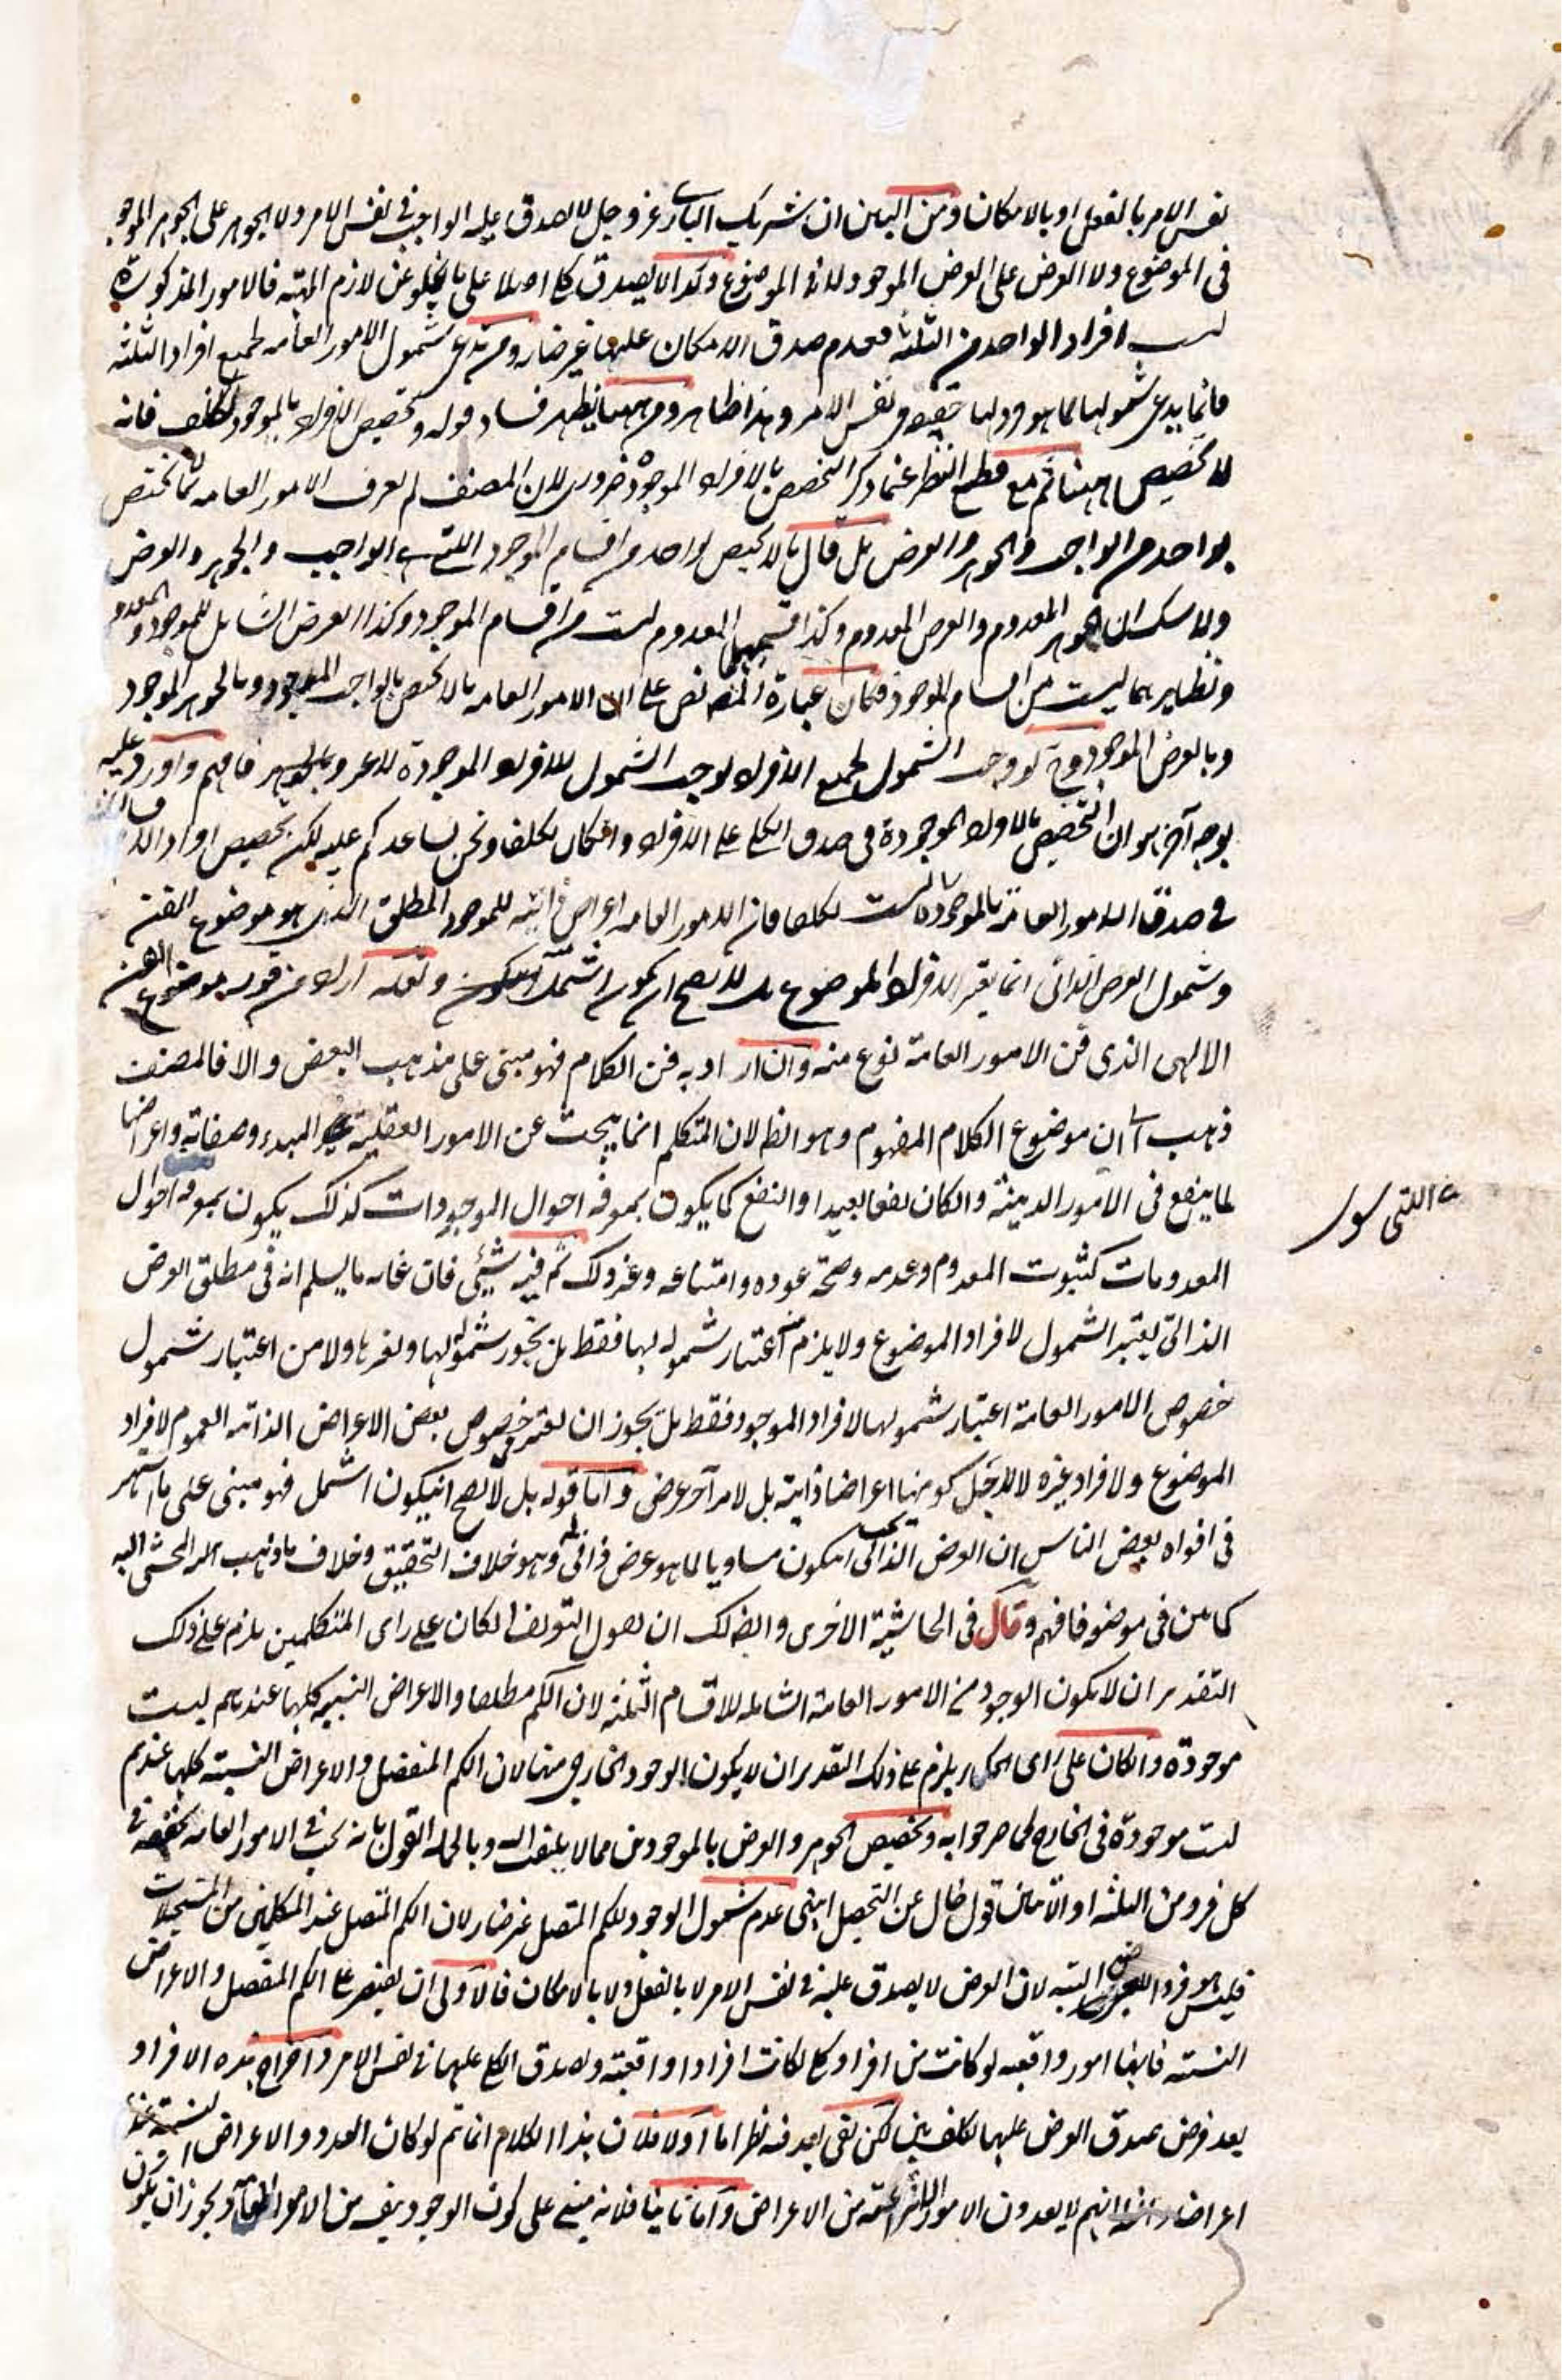 نفس الامر بالفعل او بالامكان ومن البين ان شريك البارى عز وجل لا يصدق عليه الواجب فى نفس الامر ولا الجوهر على الجوهر الموجود
فى الموضوع ولا العرض على العرض الموجود لا فى الموضوع وكذا لا يصدق كلى اصلا على ما يخلو عن لازم المهية فالامور المذكورة
ليست افراد الواحد من الثلثة فعدم صدق الامكان عليها غير ضار ومن يدعى شمول الامور العامة لجميع افراد الثلثة
فانما يدعى شمولها لما هو فرد لها حقيقة فى نفس الامر وهذا ظاهر ومن ههنا يظهر فساد قوله وتخصيص الافراد بالموجود تكلف فانه
لا تخصيص ههنا ثم مع قطع النظر عما ذكر التخصيص بالافراد الموجودة ضرورى لان المصنف لم يعرف الامور العامة بما لا يختص
بواحد من الواجب والجوهر والعرض بل قال ما لا يختص بواحد من اقسام الموجود التى هى الواجب والجوهر والعرض
ولا شك ان الجوهر المعدوم والعرض المعدوم وكذا المعدوم ليست من اقسام الموجود وكذا العرض الشامل للموجود والمعدوم
ونظايرهما ليست من اقسام الموجود فكان عبارة المصنف نص على ان الامور العامة ما لا يختص بالواجب الموجود وبالجوهر الموجود
وبالعرض الموجود فح لو وجب الشمول لجميع الافراد لوجب الشمول للافراد الموجودة للعرض والجوهر فافهم واورد عليه
بوجه آخر هو ان التخصيص بالافراد الموجودة فى صدق الكلى على الافراد وان كان تكلفا ونحن نساعدكم عليه لكن تخصيص افراد
فى صدق الامور العامة بالموجودة ليست تكلفا فان الامور العامة اعراض ذاتية للموجود المطلق الذى هو موضوع الفن
وشمول العرض الذاتى انما يعتبر لافراد الموضوع بل لا يصح ان يكون اشمل ولعله اراد من قوله موضوع الفن
الالهى الذى فن الامور العامة نوع منه وان اراد به فن الكلام فهو مبنى على مذهب البعض والا فالمصنف
ذهب الى ان موضوع الكلام المفهوم وهو الظ لان المتكلم انما يبحث عن الامور العقلية المبدء وصفاته واعراضها
لما ينفع فى الامور الدينية وان كان نفعا بعيدا والنفع كما يكون بمعرفة احوال الموجودات كذلك يكون بمعرفة احوال
المعدومات كثبوت المعدوم وعدمه وصحة عوده وامتناعه وغير ذلك ثم فيه شئ فان غاية ما يسلم انه فى مطلق العرض
الذاتى يعتبر الشمول لافراد الموضوع ولا يلزم منه اعتبار شموله لها فقط بل يجوز شموله لها ولغيرها ولا من اعتبار شمول
خصوص الامور العامة اعتبار شمولها لافراد الموجود فقط بل يجوز ان يعتبر فى خصوص بعض الاعراض الذاتية العموم لافراد
الموضوع ولافراد غيره لا لاجل كونها اعراضا ذاتية بل لامر آخر عرض واما قوله بل لا يصح ان يكون اشمل فهو مبنى على ما اشتهر
فى افواه بعض الناس ان العرض الذاتى يجب ان يكون مساويا لما هو عرض ذاتى له وهو خلاف التحقيق وخلاف ما ذهب المحشى اليه
كما بين فى موضعه فافهم وقال فى الحاشية الاخرى وايضا لك ان تقول التعريف ان كان على راى المتكلمين يلزم على ذلك
التقدير ان لا يكون الوجود من الامور العامة الشاملة للاقسام الثلثة لان الكم مطلقا والاعراض النسبية كلها عندهم ليست
موجودة وان كان على راى الحكماء يلزم على ذلك التقدير ان لا يكون الوجود الخارجى منها لان الكم المنفصل والاعراض النسبية كلها عندهم
ليست موجودة فى الخارج كما صرحوا به وتخصيص الجوهر والعرض بالموجود من مما لا يلتفت اليه وبالجملة القول بانه يجب فى الامور العامة تحققه فى
كل فرد من الثلثة او الاثنين قول خال عن التحصيل انتهى عدم شمول الوجود للكم المتصل غير ضار لان الكم المتصل عند المتكلمين من المستحيلات
فليس هو فرد العرض البتة لان العرض لا يصدق عليه فى نفس الامر لا بالفعل ولا بالامكان فالاولى ان يقتصر على الكم المنفصل والاعراض
النسبية فانها امور واقعية لو كانت من افراد كلى لكانت افرادا واقعية ولصدق الكلى عليها فى نفس الامر واخراج هذه الافراد
بعد فرض صدق العرض عليها تكلف بين لكن بقى بعد فيه نظر اما اولا فلان هذا الكلام انما تم لو كان العدد والاعراض النسبية عندهم
اعراضا انهم لا يعدون الامور الانتزاعية من الاعراض واما ثانيا فلانه مبنى على كون الوجود من الامور العامة ويجوز ان يكون